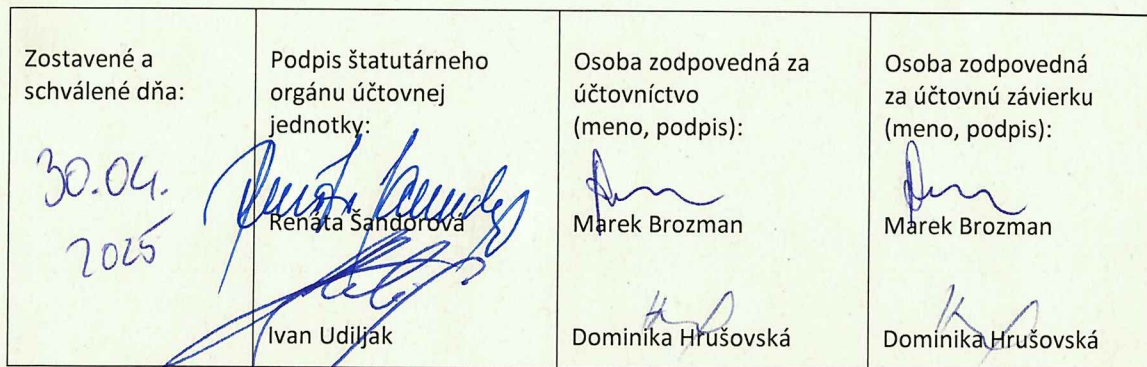 Zostavené a
schválené dňa:
30.04.
2025
Podpis štatutárneho
orgánu účtovnej
jednotky:
Renáta Šandorová
Ivan Udiljak
Osoba zodpovedná za
účtovníctvo
(meno, podpis):
Marek Brozman
Dominika Hrušovská
Osoba zodpovedná
za účtovnú závierku
(meno, podpis):
Marek Brozman
Dominika Hrušovská